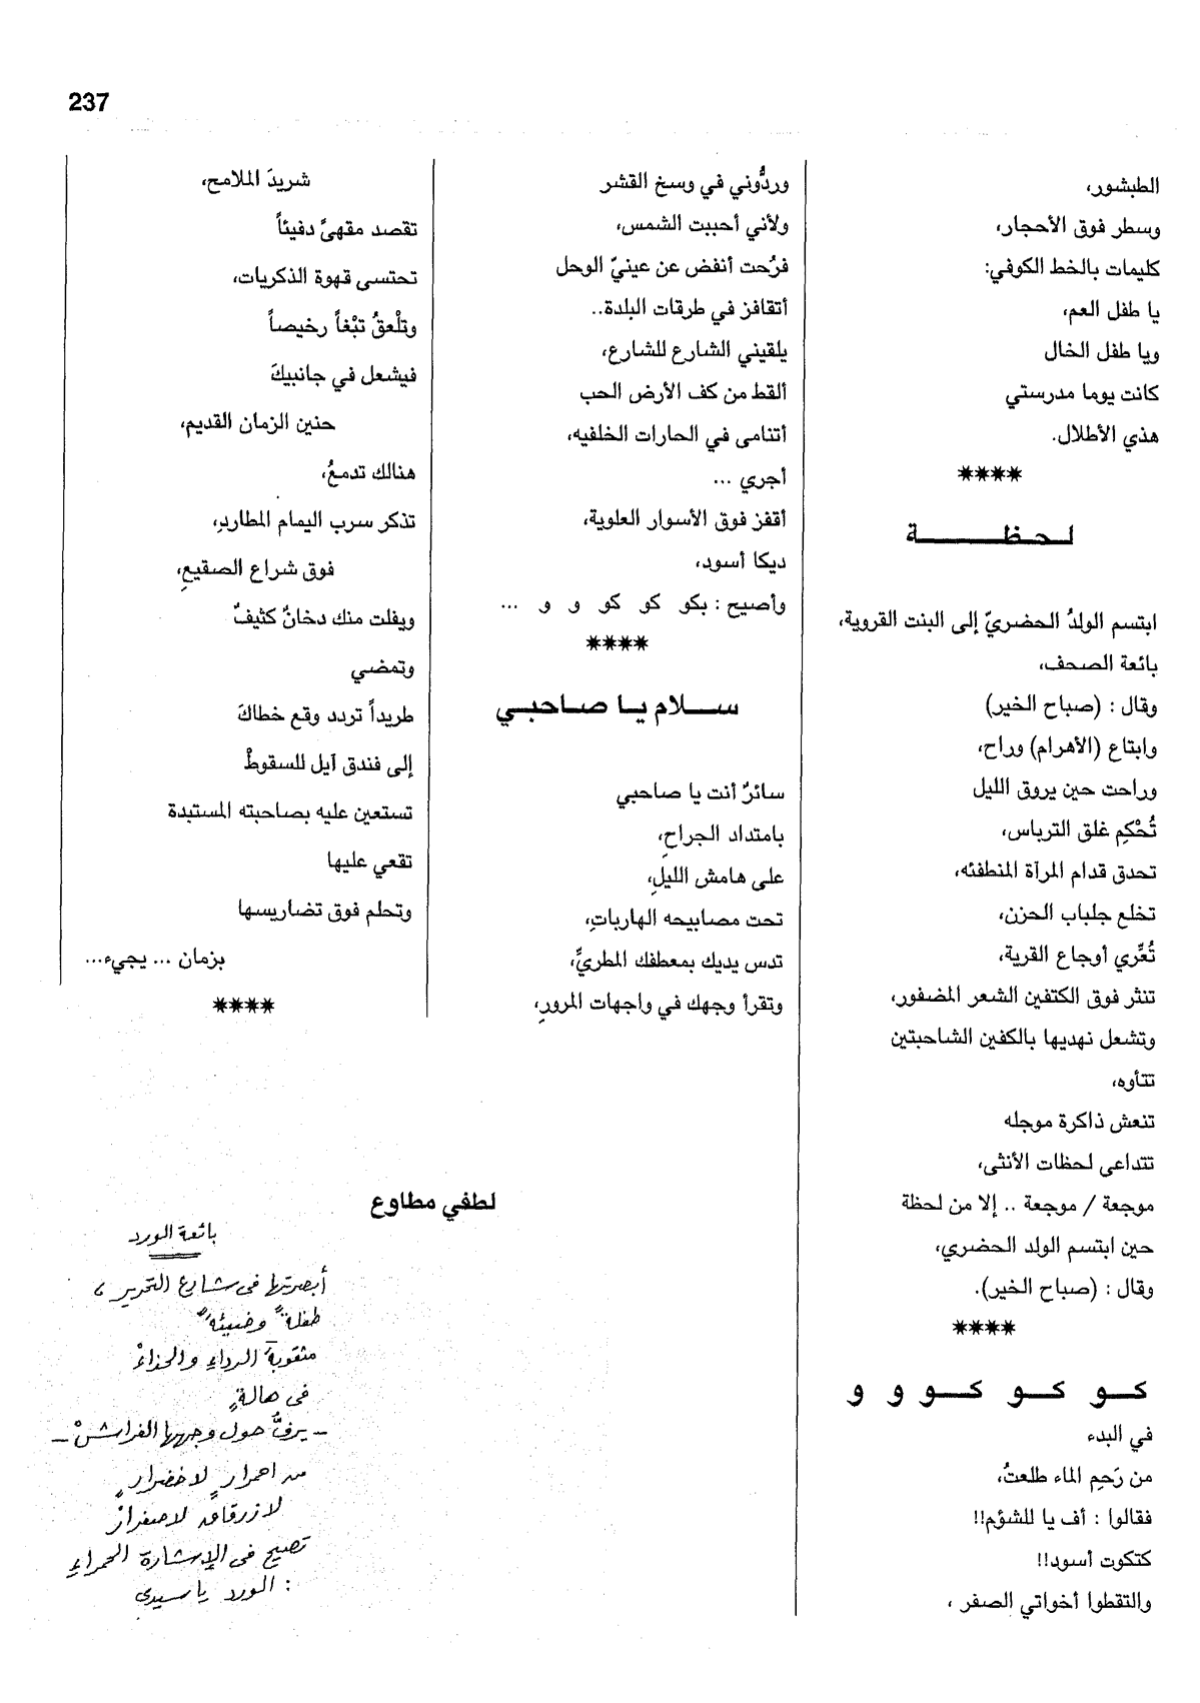 237
الطبشور،
وسطر فوق الأحجار،
كليمات بالخط الكوفي:
يا طفل العم،
ويا طفل الخال
كانت يوما مدرستي
هذي الأطلال.
****
لـحـظـــــــة
ابتسم الولدُ الحضريّ إلى البنت القروية،
بائعة الصحف،
وقال : (صباح الخير)
وابتاع (الأهرام) وراح،
وراحت حين يروق الليل
تُحْكِم غلق الترباس،
تحدق قدام المرآة المنطفئه،
تخلع جلباب الحزن،
تُعّري أوجاع القرية،
تنثر فوق الكتفين الشعر المضفور،
وتشعل نهديها بالكفين الشاحبتين
تتأوه،
تنعش ذاكرة موجله
تتداعى لحظات الأنثى،
موجعة / موجعة .. إلا من لحظة
حين ابتسم الولد الحضري،
وقال : (صباح الخير).
****
كـــو كـــو كـــو و و
في البدء
من رَحِم الماء طلعتُ،
فقالوا : أف يا للشؤم!!
كتكوت أسود!!
والتقطوا أخواتي الصفر ،
وردُّوني في وسخ القشر
ولأني أحببت الشمس،
فرُحت أنفض عن عينيّ الوحل
أتقافز في طرقات البلدة..
يلقيني الشارع للشارع،
ألقط من كف الأرض الحب
أتنامى في الحارات الخلفيه،
أجري ...
أقفز فوق الأسوار العلوية،
ديكا أسود،
وأصيح : بكو كو كو و و ...
****
ســـلام يـا صـاحبـي
سائرٌ أنت يا صاحبي
بامتداد الجراحِ،
على هامش الليلِ،
تحت مصابيحه الهارباتِ،
تدس يديك بمعطفك المطريِّ،
وتقرأ وجهك في واجهات المرورِ،
شريدَ الملامح،
تقصد مقهىً دفيئاً
تحتسى قهوة الذكريات،
وتلْعقُ تبْغاً رخيصاً
فيشعل في جانبيكَ
حنين الزمان القديم،
هنالك تدمعُ،
تذكر سرب اليمام المطاردِ،
فوق شراع الصقيعِ،
ويفلت منك دخانٌ كثيفٌ
وتمضي
طريداً تردد وقع خطاكَ
إلى فندق آيل للسقوطْ
تستعين عليه بصاحبته المستبدة
تقعي عليها
وتحلم فوق تضاريسها
بزمان ... يجيء...
****
لطفي مطاوع
بائعة الورد
أبصرتها فى شارع التحرير ،
طفلةً وضيئةً
مثقوبةَ الرداءِ والحذاءْ
فى هالةٍ
– يرفُّ حول وجهها الفراشْ –
من احمرارٍ لاخضرارٍ
لازرقاقٍ لاصفرارْ
تصيح فى الإشارة الحمراءِ
: الورد ياسيدى